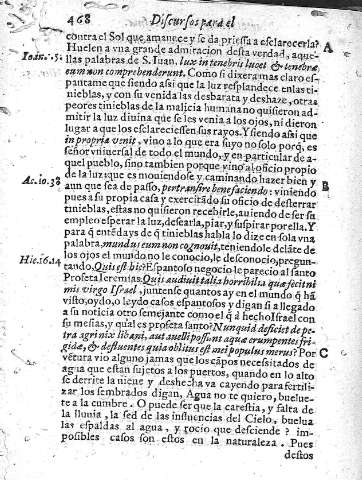 468 Discursos para el
contra el Sol que amanece y se da priessa a esclarecerla? A
Ioan. 1. 5. Huelen a vna grande admiracion desta verdad, aque-
llas palabras de S. Iuan. lux in tenebris lucet & tenebræ
eum non comprehenderunt. Como si dixera mas claro es-
pantame que siendo assi que la luz resplandece en las ti-
nieblas, y con su venida las desbarata y deshaze, otras
peores tinieblas de la malicia humana no quisieron ad-
mitir la luz diuina que se les venia a los ojos, ni dieron
lugar a que los esclareciessen sus rayos. Y siendo assi que
in propria venit, vino a lo que era suyo no solo porq̃, es
señor vniuersal de todo el mundo, y en particular de a-
quel pueblo, sino tambien porque vino al oficio propio
de la luz que es mouiendose y caminando hazer bien y
Ac. 10. 38 aun que sea de passo, pertransiit benefaciendo: viniendo B
pues a su propia casa y exercitado su oficio de desterrar
tinieblas, estas no quisieron recebirle, auiendo de ser su
empleo esperar la luz, desearla, piar, y suspirar por ella. Y
para q̃ entẽdays de q̃ tinieblas habla lo dize en sola vna
palabra, mundus eum non cognouit, teniendole delãte de
los ojos el mundo no le conocio, le desconocio, pregun-
Hie. 16. 14 tando. Quis est hic? Espantoso negocio le parecio al santo
Profeta Ieremias. Quis audiuit talia horribilia quæ fecit ni
mis virgo Israel, juntense quantos ay en el mundo q̃ hã
visto, oydo, o leydo casos espantosos y digan si a llegado
a su noticia otro semejante como el q̃ à hecho Israel con
su mesias, y qual es profeta santo? Nunquid deficiet de pe-
tra agri nix libani, aut auelli possunt aquæ erumpentes fri-
gidæ, & defluentes quia oblitus est mei populus meus? Por C
vẽtura vio alguno jamas que los cãpos necesitados de
agua que estan sujetos a los puertos, quando en lo alto
se derrite la nieue y deshecha va cayendo para fertili-
zar los sembrados digan, Agua no te quiero, buelue-
te a la cumbre. O puede ser que la carestia, y falta de
la lluuia, la sed de las influencias del Cielo, buelua
las espaldas al agua, y rocio que desciende? im-
posibles casos son estos en la naturaleza. Pues
destos